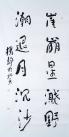 崖崩星濺野
潮退月沉沙